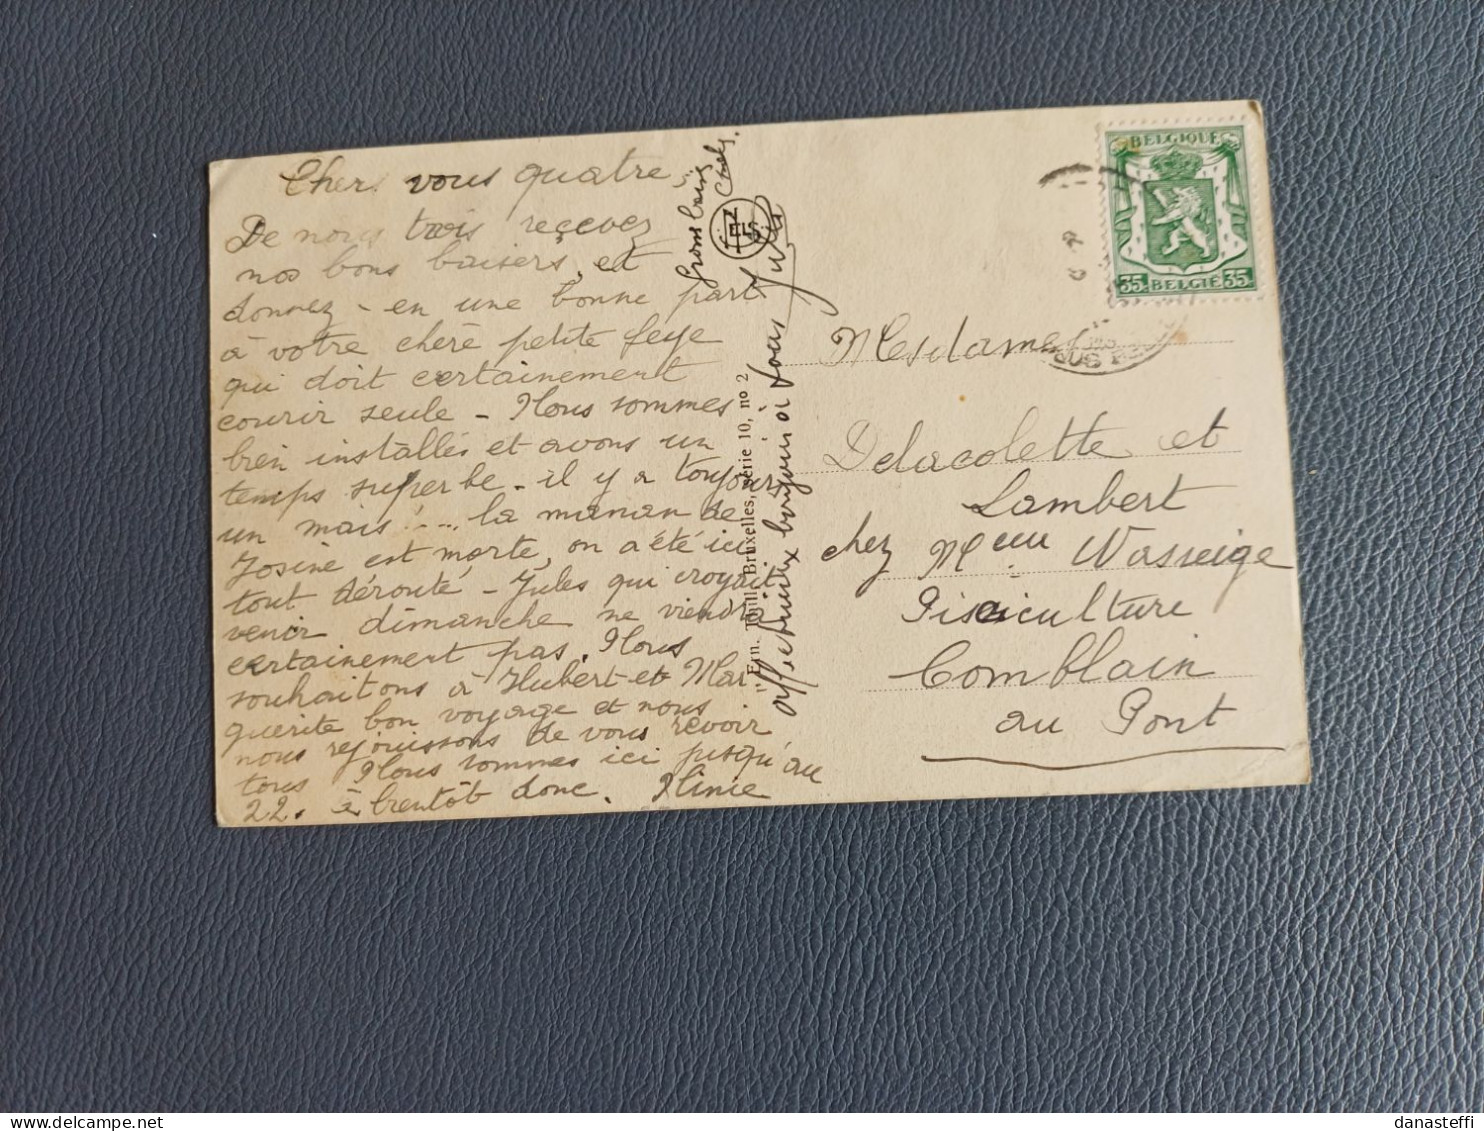 Chers vous quatre,
De nous trois recevez
nos bons baisers, et
donnez - en une bonne part
à votre chère petite feye
qui doit certainement
courir seule - Nous sommes
bien installés et avons un
temps superbe - il y a toujours
un mais ! ... la maman de
Josine est morte, on a été ici
tout dérouté - Jules qui croyait
venir dimanche ne viendra
certainement pas. Nous
souhaitons à Hubert et Mar
guerite bon voyage et nous
nous rejouissons de vous revoir
tous Nous sommes ici jusqu'au
22. à bientôt donc. Ninie
Gros baisers
affectueux bonjour à tous
ELS
"Ern. Thill, Bruxelles, série 10, no 2
BELGIQUE
35 BELGIE 35
Mesdames
Delacolette et
Lambert
chez Mme Wasseige
Pisciculture
Comblain
au Pont
danasteffi